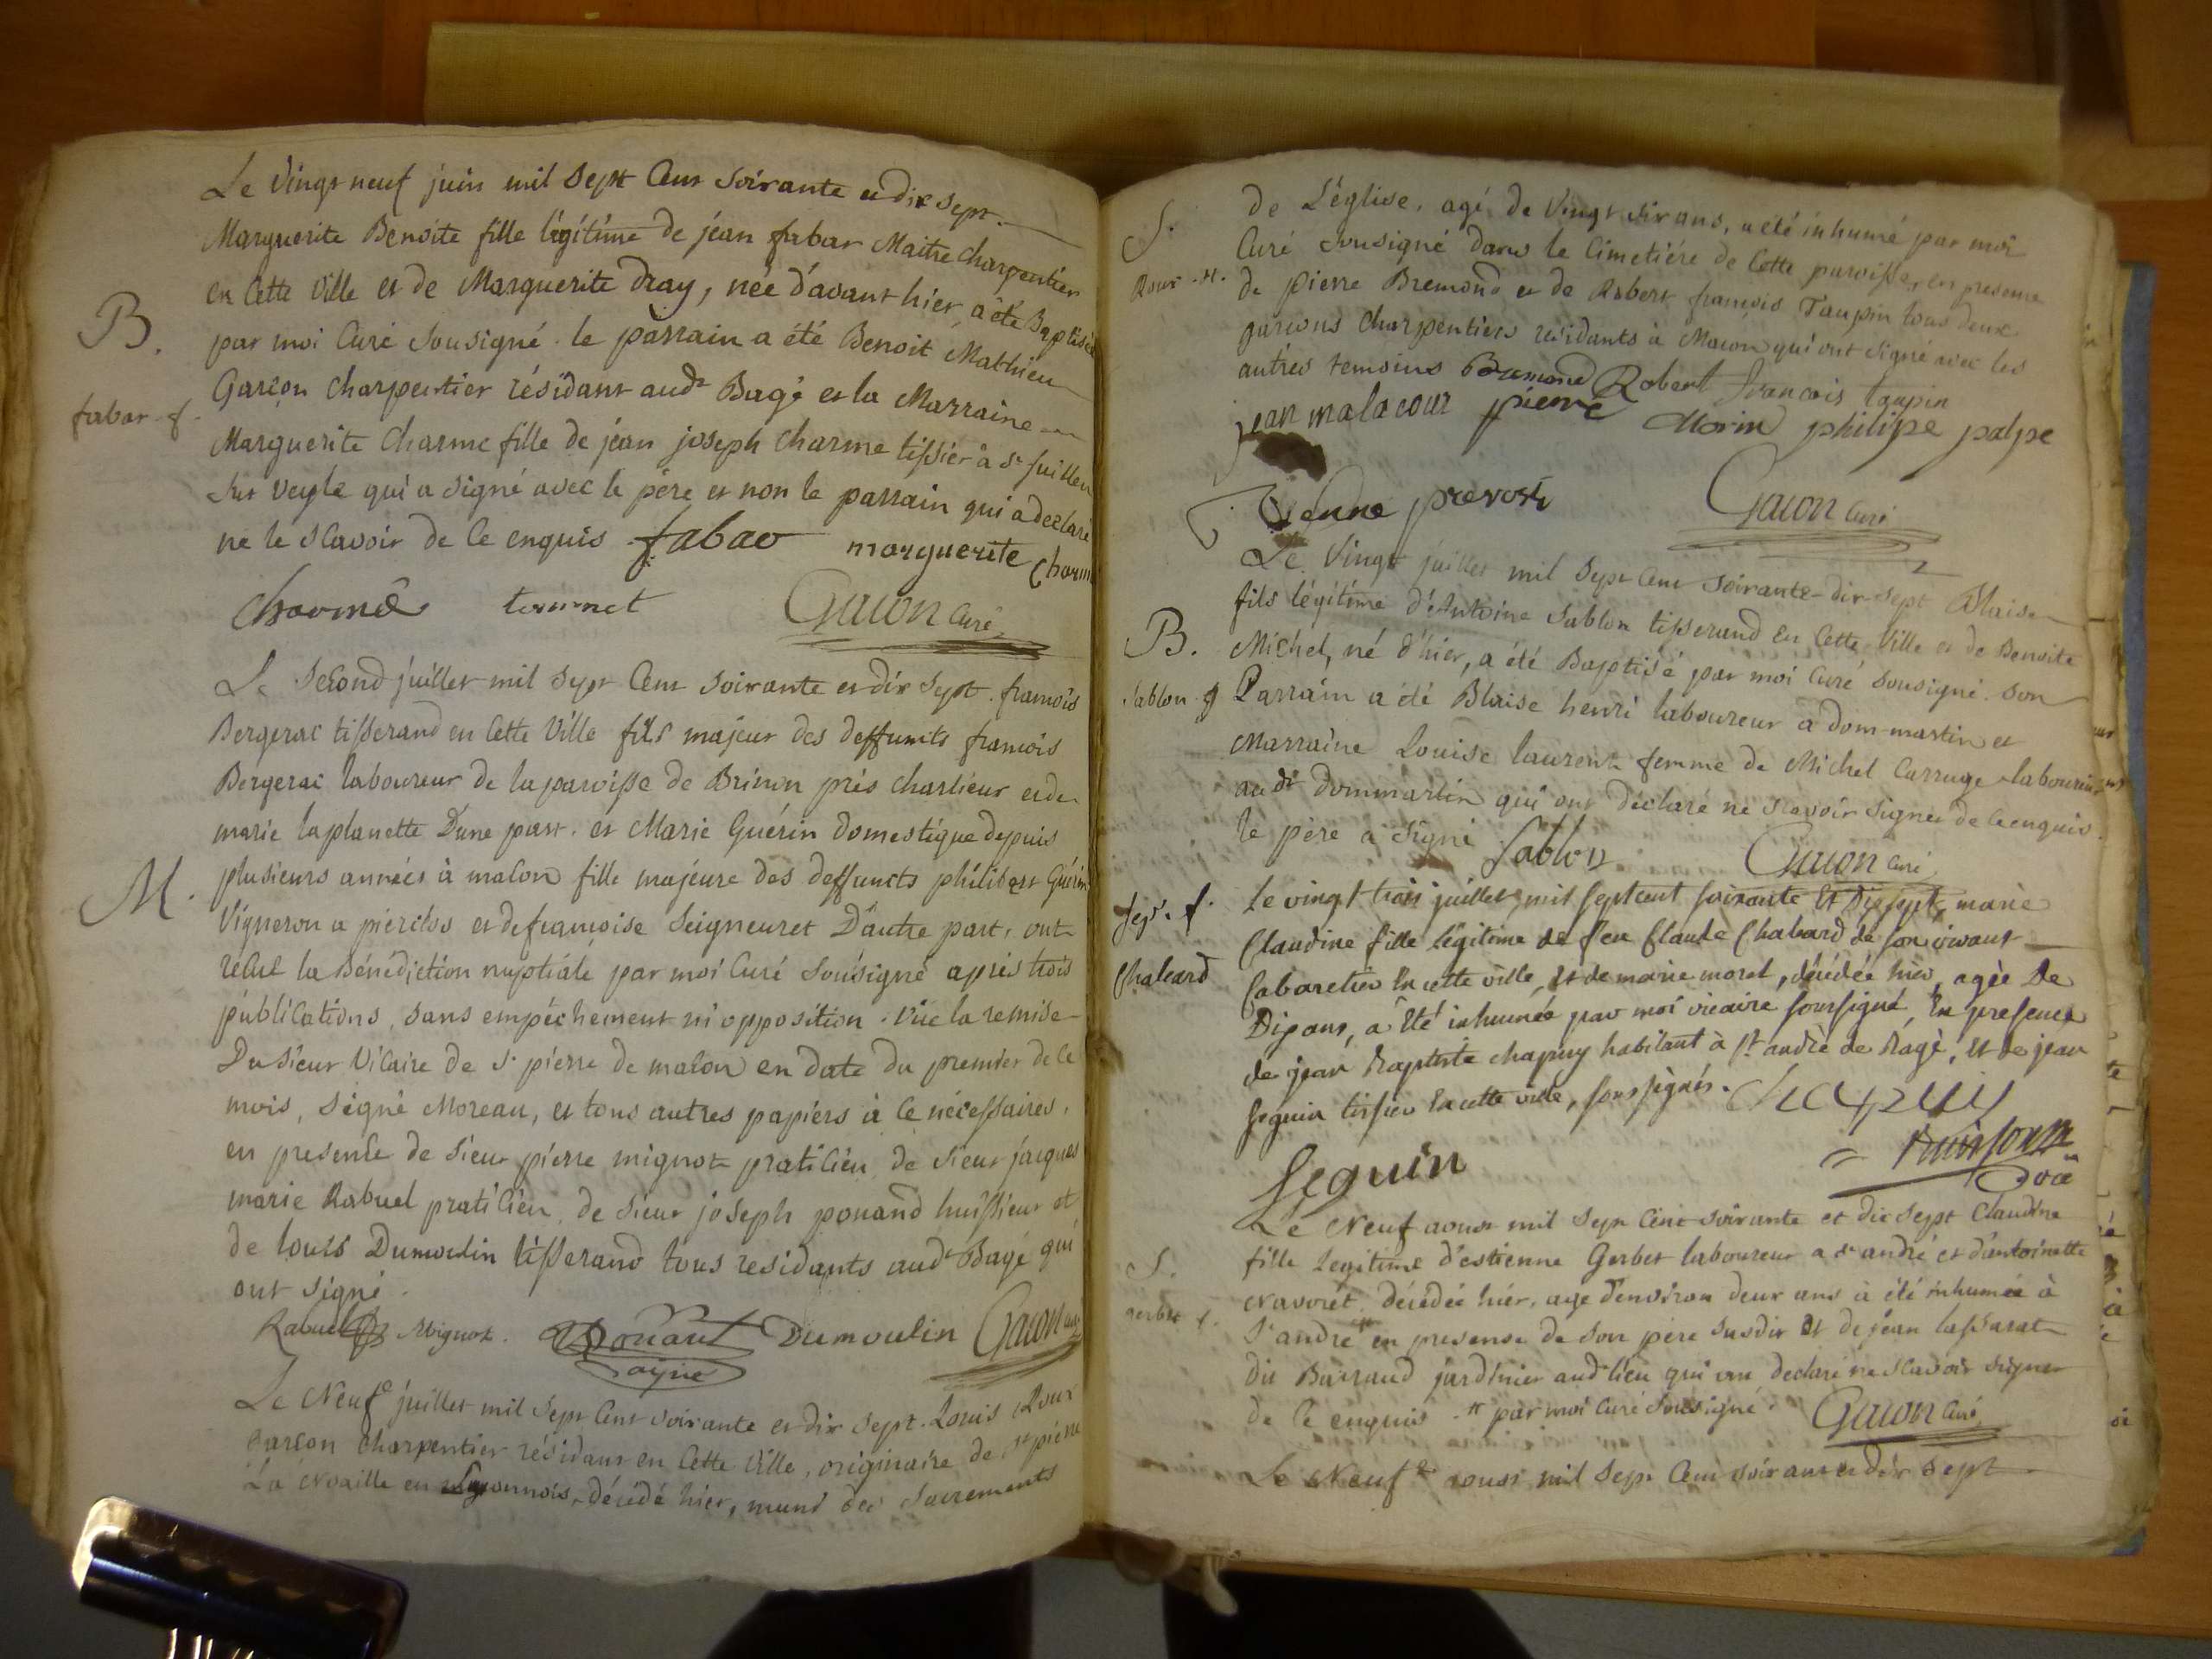 Le Vingt neuf juin mil Sept Cent Soixante et dix Sept.
Marguerite Benoite fille légitime de jéan fabar Maitre Charpentier
en Cette Ville et de Marguerite Dray, née d'avant hier, a été Baptisée
B.
par moi Curé Sousigné. le parrain a été Benoit Mathieu
Garçon Charpentier résidant aud.t Bagé et la Marraine
fabar f.
Marguerite Charme fille de jéan joseph Charme tissier à S.t juillen
sur veyle qui a signé avec le pére et non le parrain qui a declaré
ne le Scavoir de Ce enquis fabar marguerite Charme
Charme tournet Gacon Curé
Le Second juillet mil Sept Cent Soixante et dix Sept. francois
Bergerac tisserand en Cette Ville fils majeur des deffuncts francois
Bergerac laboureur de la paroisse de près Charlieux et de
marie laplanette D'une part. et Marie Guérin domestique depuis
M.
plusieurs années à macon fille majeure des deffuncts philibert Guérin
Vigneron a pierclos et de francoise Seigneuret D'autre part, ont
recue la Bénédiction nuptiale par moi Curé Sousigné après trois
publications, sans empéchement ni opposition. Vue la remise
Du Sieur Vicaire de S.t pierre de macon en date du premier de Ce
mois, Signé Moreau, et tous autres papiers à Ce nécessaires,
en presence de Sieur pierre mignot praticien, de Sieur jacques
marie Rabuel praticien, de Sieur joseph pouand huissieur et
de louis Dumoulin tisserand tous residants aud.t Bagé qui
ont Signé.
Rabuel Mignot. Dumoulin Gacon Curé
Le Neuf.e juillet mil Sept Cent soixante et dix sept. Louis Roux
Garcon Charpentier résidant en Cette Ville, originaire de S.t pierre
La Noaille en Lyonnois, décédé hier, muni des Sacrements
S.
de L'église, agé de Vingt six ans, a été inhumé par moi
Curé Sousigné dans le Cimetiére de Cette paroisse, en presence
Roux .H.
de pierre Bremond et de Robert francois Taupin tous deux
garcons Charpentiers résidants à Macon qui ont signé avec les
autres temoins Bremond Robert francois taupin
jean malacour pierre Morin philipe palpe
prevost Gacon Curé
Le Vingt juillet mil Sept Cent Soixante-dix-Sept Blaise
fils légitime d'Antoine Sablon tisserand en Cette Ville et de Benoite
B.
Michel, né d'hier, a été Baptisé par moi Curé Sousigné. son
Sablon g
Parrain a été Blaise henri laboureur à dom-martin et
Marraine Louise laurent femme de Michel Carruge laboureur
aud.t dommartin qui ont déclaré ne scavoir signer de Ce enquis.
le pére a Signé Sablon Gacon Curé
Sep.e f.
le vingt trois juillet, mil sept cent soixante et dix sept, marie
Claudine fille légitime de feu Claude Chabard de son vivant
Chabard
Cabaretier en cette ville, et de marie morel, décédée hier, agée de
Dix ans, a été inhumée par moi vicaire soussigné, en presence
de jean Baptiste chapuy habitant à s.t andrè de Bagé, et de jean
seguin tissier en cette ville, soussignés. chapuy
Seguin
Le Neuf aoust mil Sept Cent soixante et dix sept Claudine
fille Legitime d'estienne Gerbet laboureur a S.t andré et d'antoinette
S.
Navoret décédée hier, agé d'environ deux ans à été inhumée à
gerbet f.
S.t andré en presence de Son pére susdit et de jéan lassarat
dit Buiraud jardinier aud.t lieu qui ont declaré ne Scavoir signer
de Ce enquis. # par moi Curé Sousigné. Gacon Curé
Le Neuf.e aoust mil Sept Cent soixante et dix sept